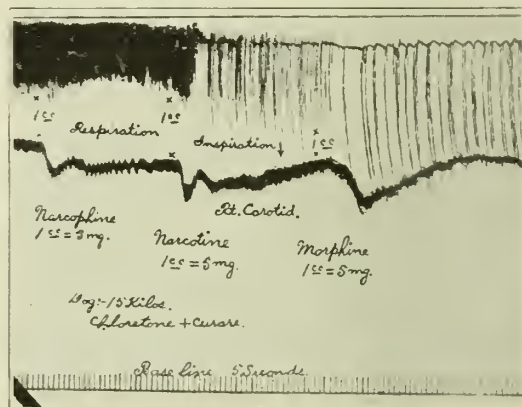 1 cc 1 cc
Respiration Inspiration ↓ 1 cc
Rt. Carotid.
Narcophine
1 cc = 3 mg.
Narcotine
1 cc = 5 mg.
Morphine
1 cc = 5 mg.
Dog:- 15 Kilos.
Chloretone + Curare.
Base line 5 Seconds.